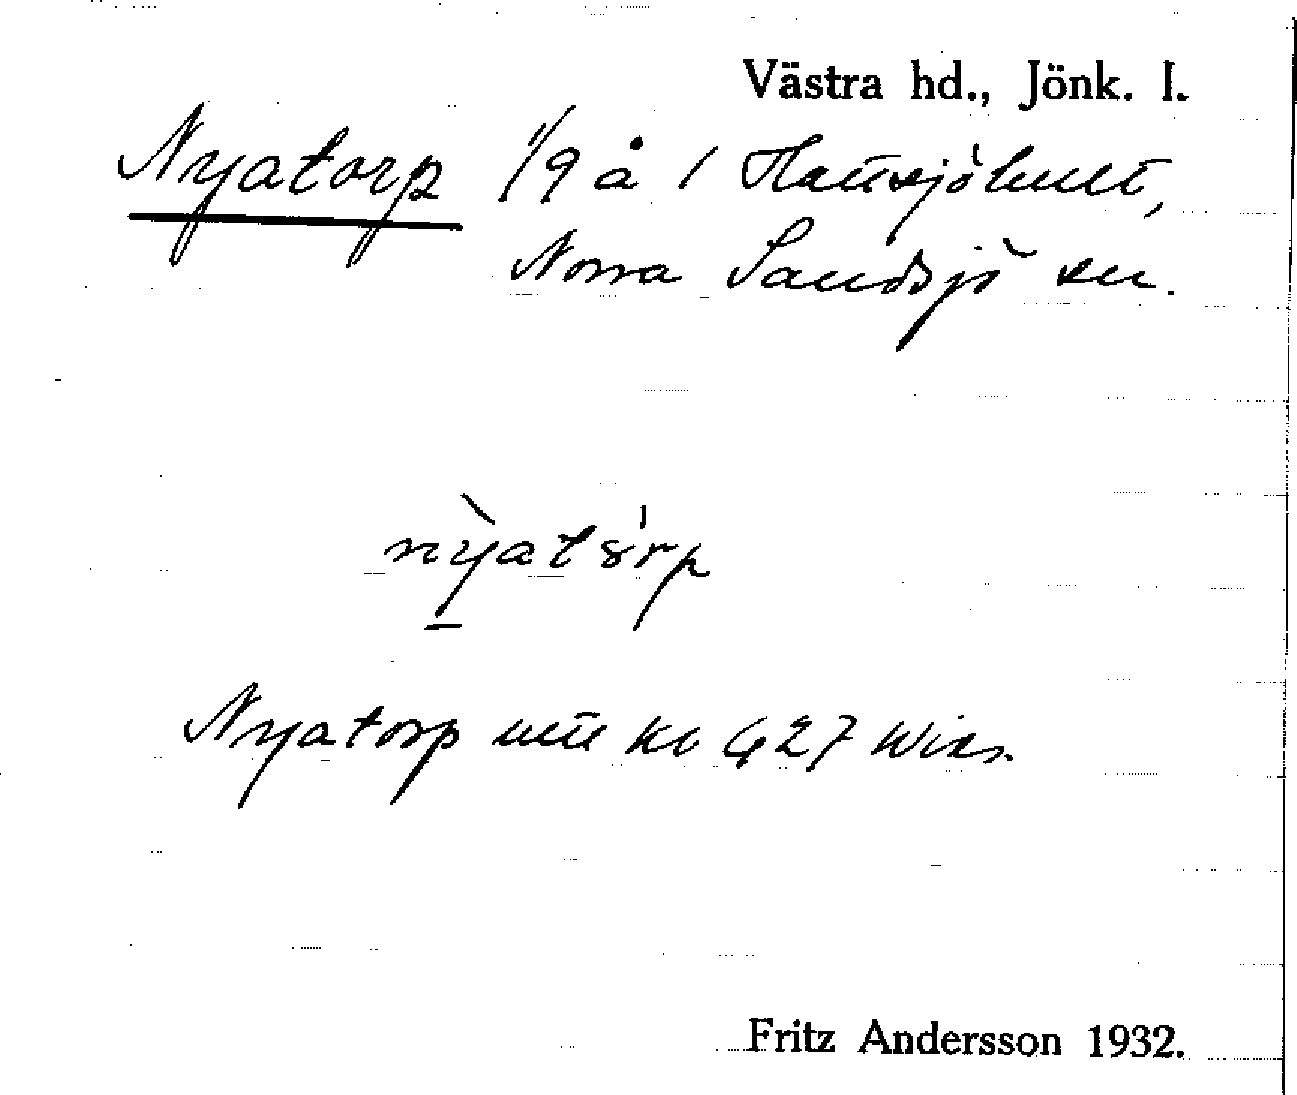 Västra hd., Jönk. l.
Nyatorp 1/9 å 1 Hattsjöhult,
Norra Sandsjö sn.
nyatorp
Nyatorp
427
Fritz Andersson 1932.